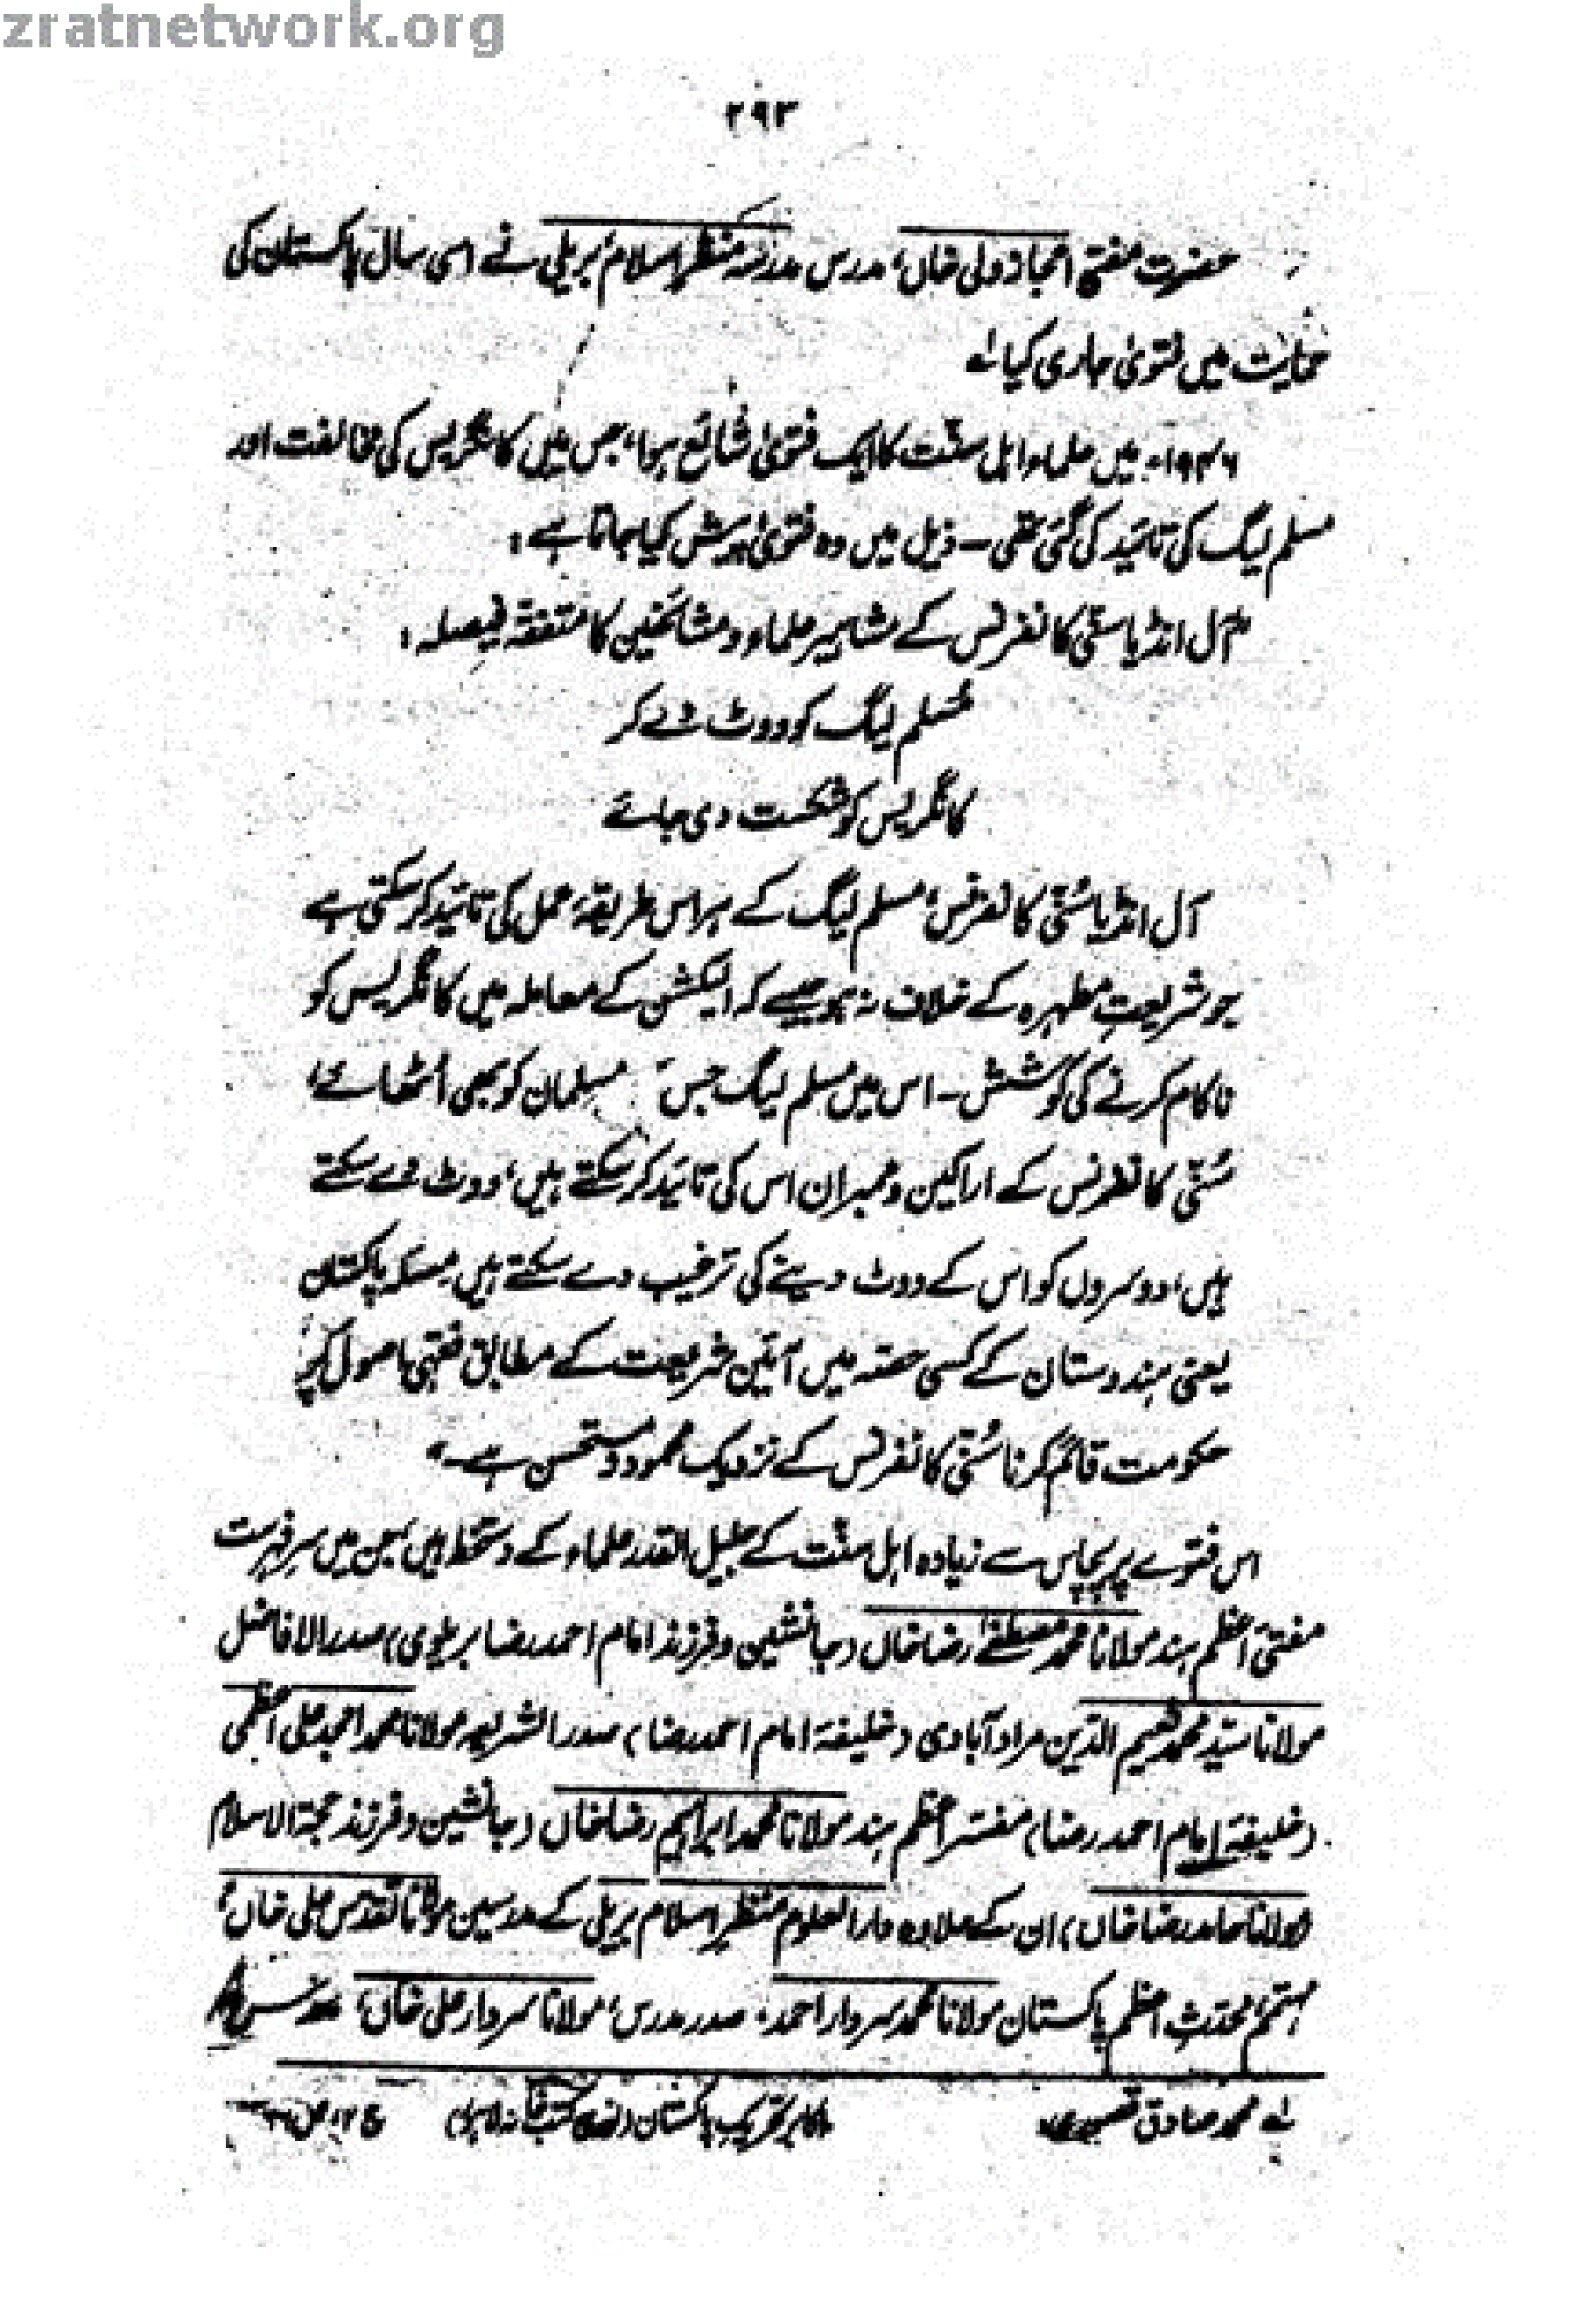 zratnetwork.org
۲۹۳
حضرت مفتی اعجاز ولی خاں، مدرس مدرسہ منظر اسلام، بریلی نے اسی سال پاکستان کی
حمایت میں فتویٰ جاری کیا ۱؎
۱۹۴۶ء میں علماء اہل سنّت کا ایک فتویٰ شائع ہوا، جس میں کانگریس کی مخالفت اور
مسلم لیگ کی تائید کی گئی تھی ۔ ذیل میں وہ فتویٰ پیش کیا جاتا ہے :
آل انڈیا سنّی کانفرنس کے مشاہیر علماء و مشائخین کا متفقہ فیصلہ :
مُسلم لیگ کو ووٹ دے کر
کانگریس کو شکست دی جائے
آل انڈیا سُنّی کانفرنس، مسلم لیگ کے ہر اس طریقۂ عمل کی تائید کر سکتی ہے
جو شریعتِ مطہرہ کے خلاف نہ ہو جیسے کہ الیکشن کے معاملہ میں کانگریس کو
ناکام کرنے کی کوشش ۔ اس میں مسلم لیگ جس مسلمان کو بھی اُٹھائے،
سُنّی کانفرنس کے اراکین و ممبران اس کی تائید کر سکتے ہیں، ووٹ دے سکتے
ہیں، دوسروں کو اس کے ووٹ دینے کی ترغیب دے سکتے ہیں۔ مسئلہ پاکستان
یعنی ہندوستان کے کسی حصّہ میں آئینِ شریعت کے مطابق فقہی اصول پر
حکومت قائم کرنا سُنّی کانفرنس کے نزدیک محمود و مستحسن ہے ۔"
اس فتوے پر پچاس سے زیادہ اہل سنّت کے جلیل القدر علماء کے دستخط ہیں، جن میں سرِ فہرست
مفتیٔ اعظم ہند مولانا محمد مصطفےٰ رضا خاں (جانشین و فرزند امام احمد رضا بریلوی) صدر الافاضل
مولانا سیّد محمد نعیم الدّین مراد آبادی (خلیفۂ امام احمد رضا) صدر الشریعہ مولانا محمد امجد علی اعظمی
(خلیفۂ امام احمد رضا) مفسّر اعظم ہند مولانا محمد ابراہیم رضا خاں (جانشین و فرزند حجۃ الاسلام
مولانا حامد رضا خاں) ان کے علاوہ دار العلوم منظر اسلام بریلی کے مدرسین مولانا تقدس علی خاں،
مہتمم، محدّثِ اعظم پاکستان مولانا محمد سردار احمد، صدر مدرس، مولانا سردار علی خاں،
۱؎ محمد صادق قصوری، اکابر تحریک پاکستان (نوری کتب خانہ لاہور) ج ۲، ص